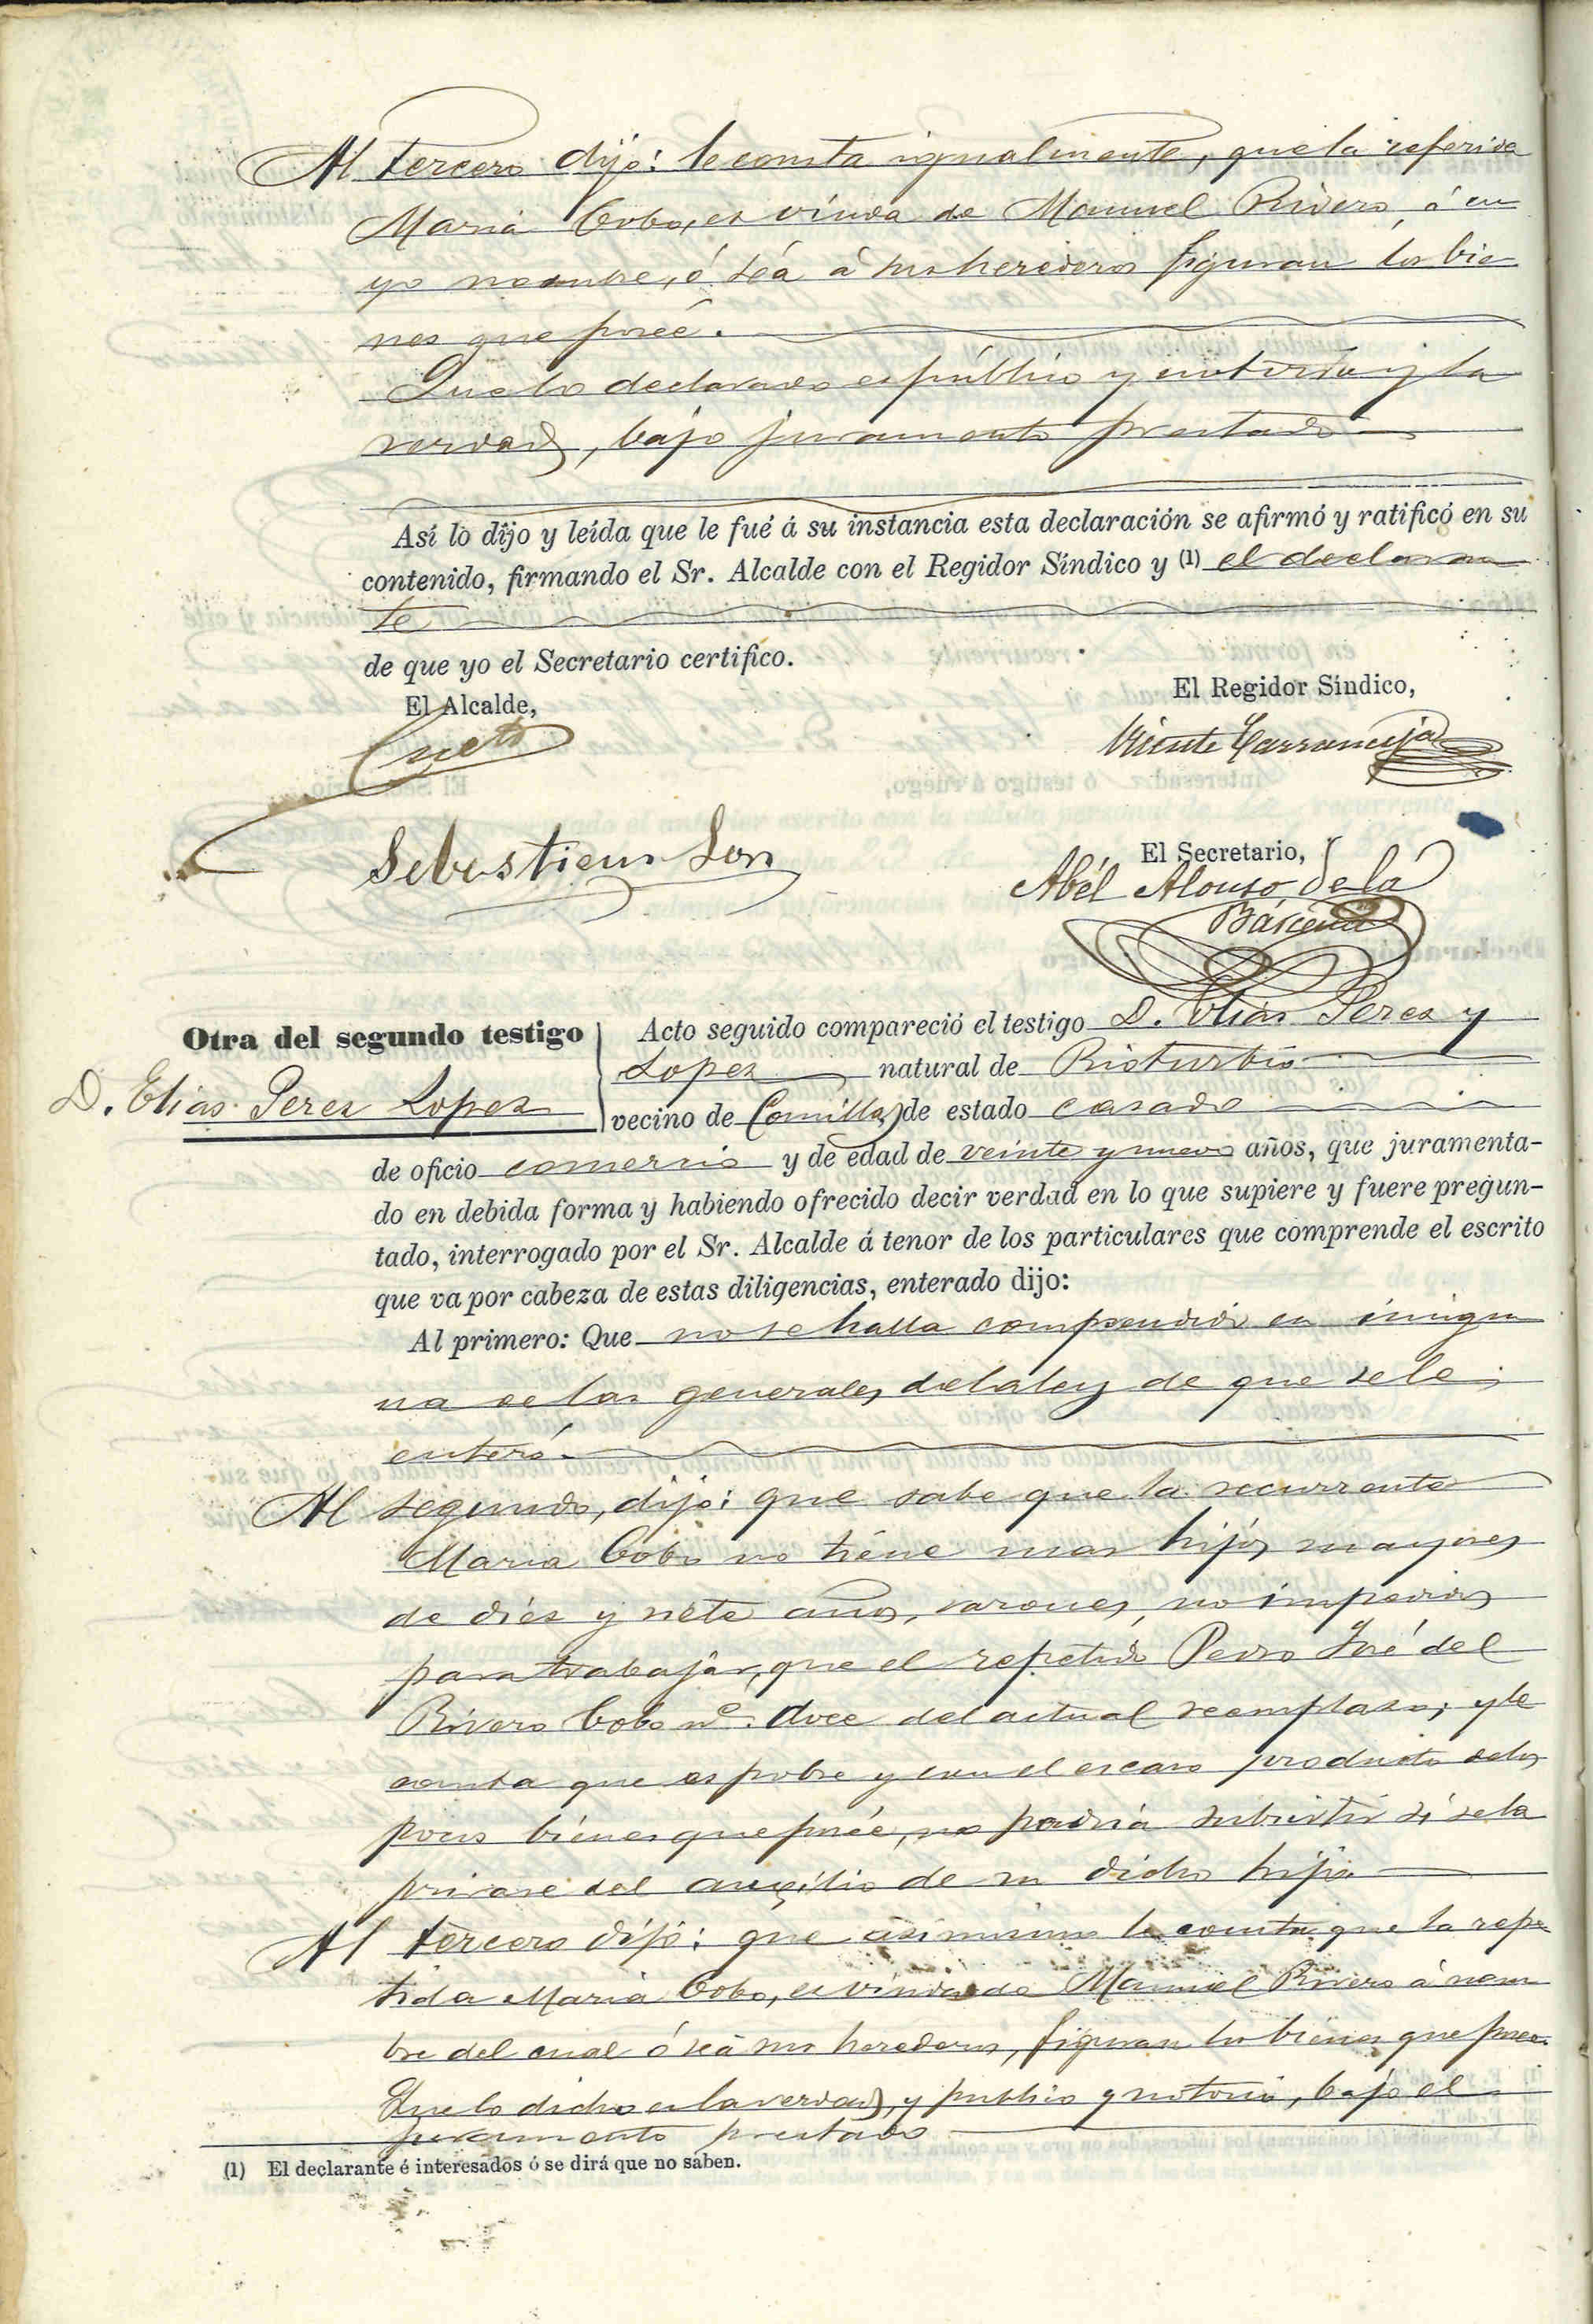 Al tercero dijo: le consta igualmente, que la referida
Maria Cobo, es viuda de Manuel Rivero, á cu
yo nombre, ó séa á sus herederos figuran los bie
nes que poseé.
Que lo declarado es público y notorio y la
verdad, bajo juramento prestado
Así lo dijo y leída que le fué á su instancia esta declaración se afirmó y ratificó en su
contenido, firmando el Sr. Alcalde con el Regidor Síndico y (1) el declaran
te
de que yo el Secretario certifico.
El Alcalde,
El Regidor Síndico,
Cueto
Vicente Carranceja
El Secretario,
Sebastian
Abél Alonso de la
Bárcena
Otra del segundo testigo
D. Elias Perez Lopez
Acto seguido compareció el testigo D. Elias Perez y
Lopez natural de Rioturbio
vecino de Comillas de estado casado
de oficio comercio y de edad de veinte y nueve años, que juramenta-
do en debida forma y habiendo ofrecido decir verdad en lo que supiere y fuere pregun-
tado, interrogado por el Sr. Alcalde á tenor de los particulares que comprende el escrito
que va por cabeza de estas diligencias, enterado dijo:
Al primero: Que no se halla comprendido en ningu
na de las generales de la ley de que se le
enteró.
Al segundo, dijo: que sabe que la recurrente
Maria Cobo no tiene mas hijos mayores
de diez y siete años, varones, no impedidos
para trabajar, que el repetido Pedro José del
Rivero Cobo nº. doce del actual reemplazo, y le
consta que es pobre y con el escaso producto de los
pocos bienes que poseé, no podria subsistir si se la
privase del auxilio de su dicho hijo
Al tercero dijo: que asimismo le consta que la repe
tida Maria Cobo, es viuda de Manuel Rivero á nom
bre del cual ó séa sus herederos, figuran los bienes que posee.
Que lo dicho es la verdad, y publico y notorio, bajo el
juramento prestado
(1) El declarante é interesados ó se dirá que no saben.